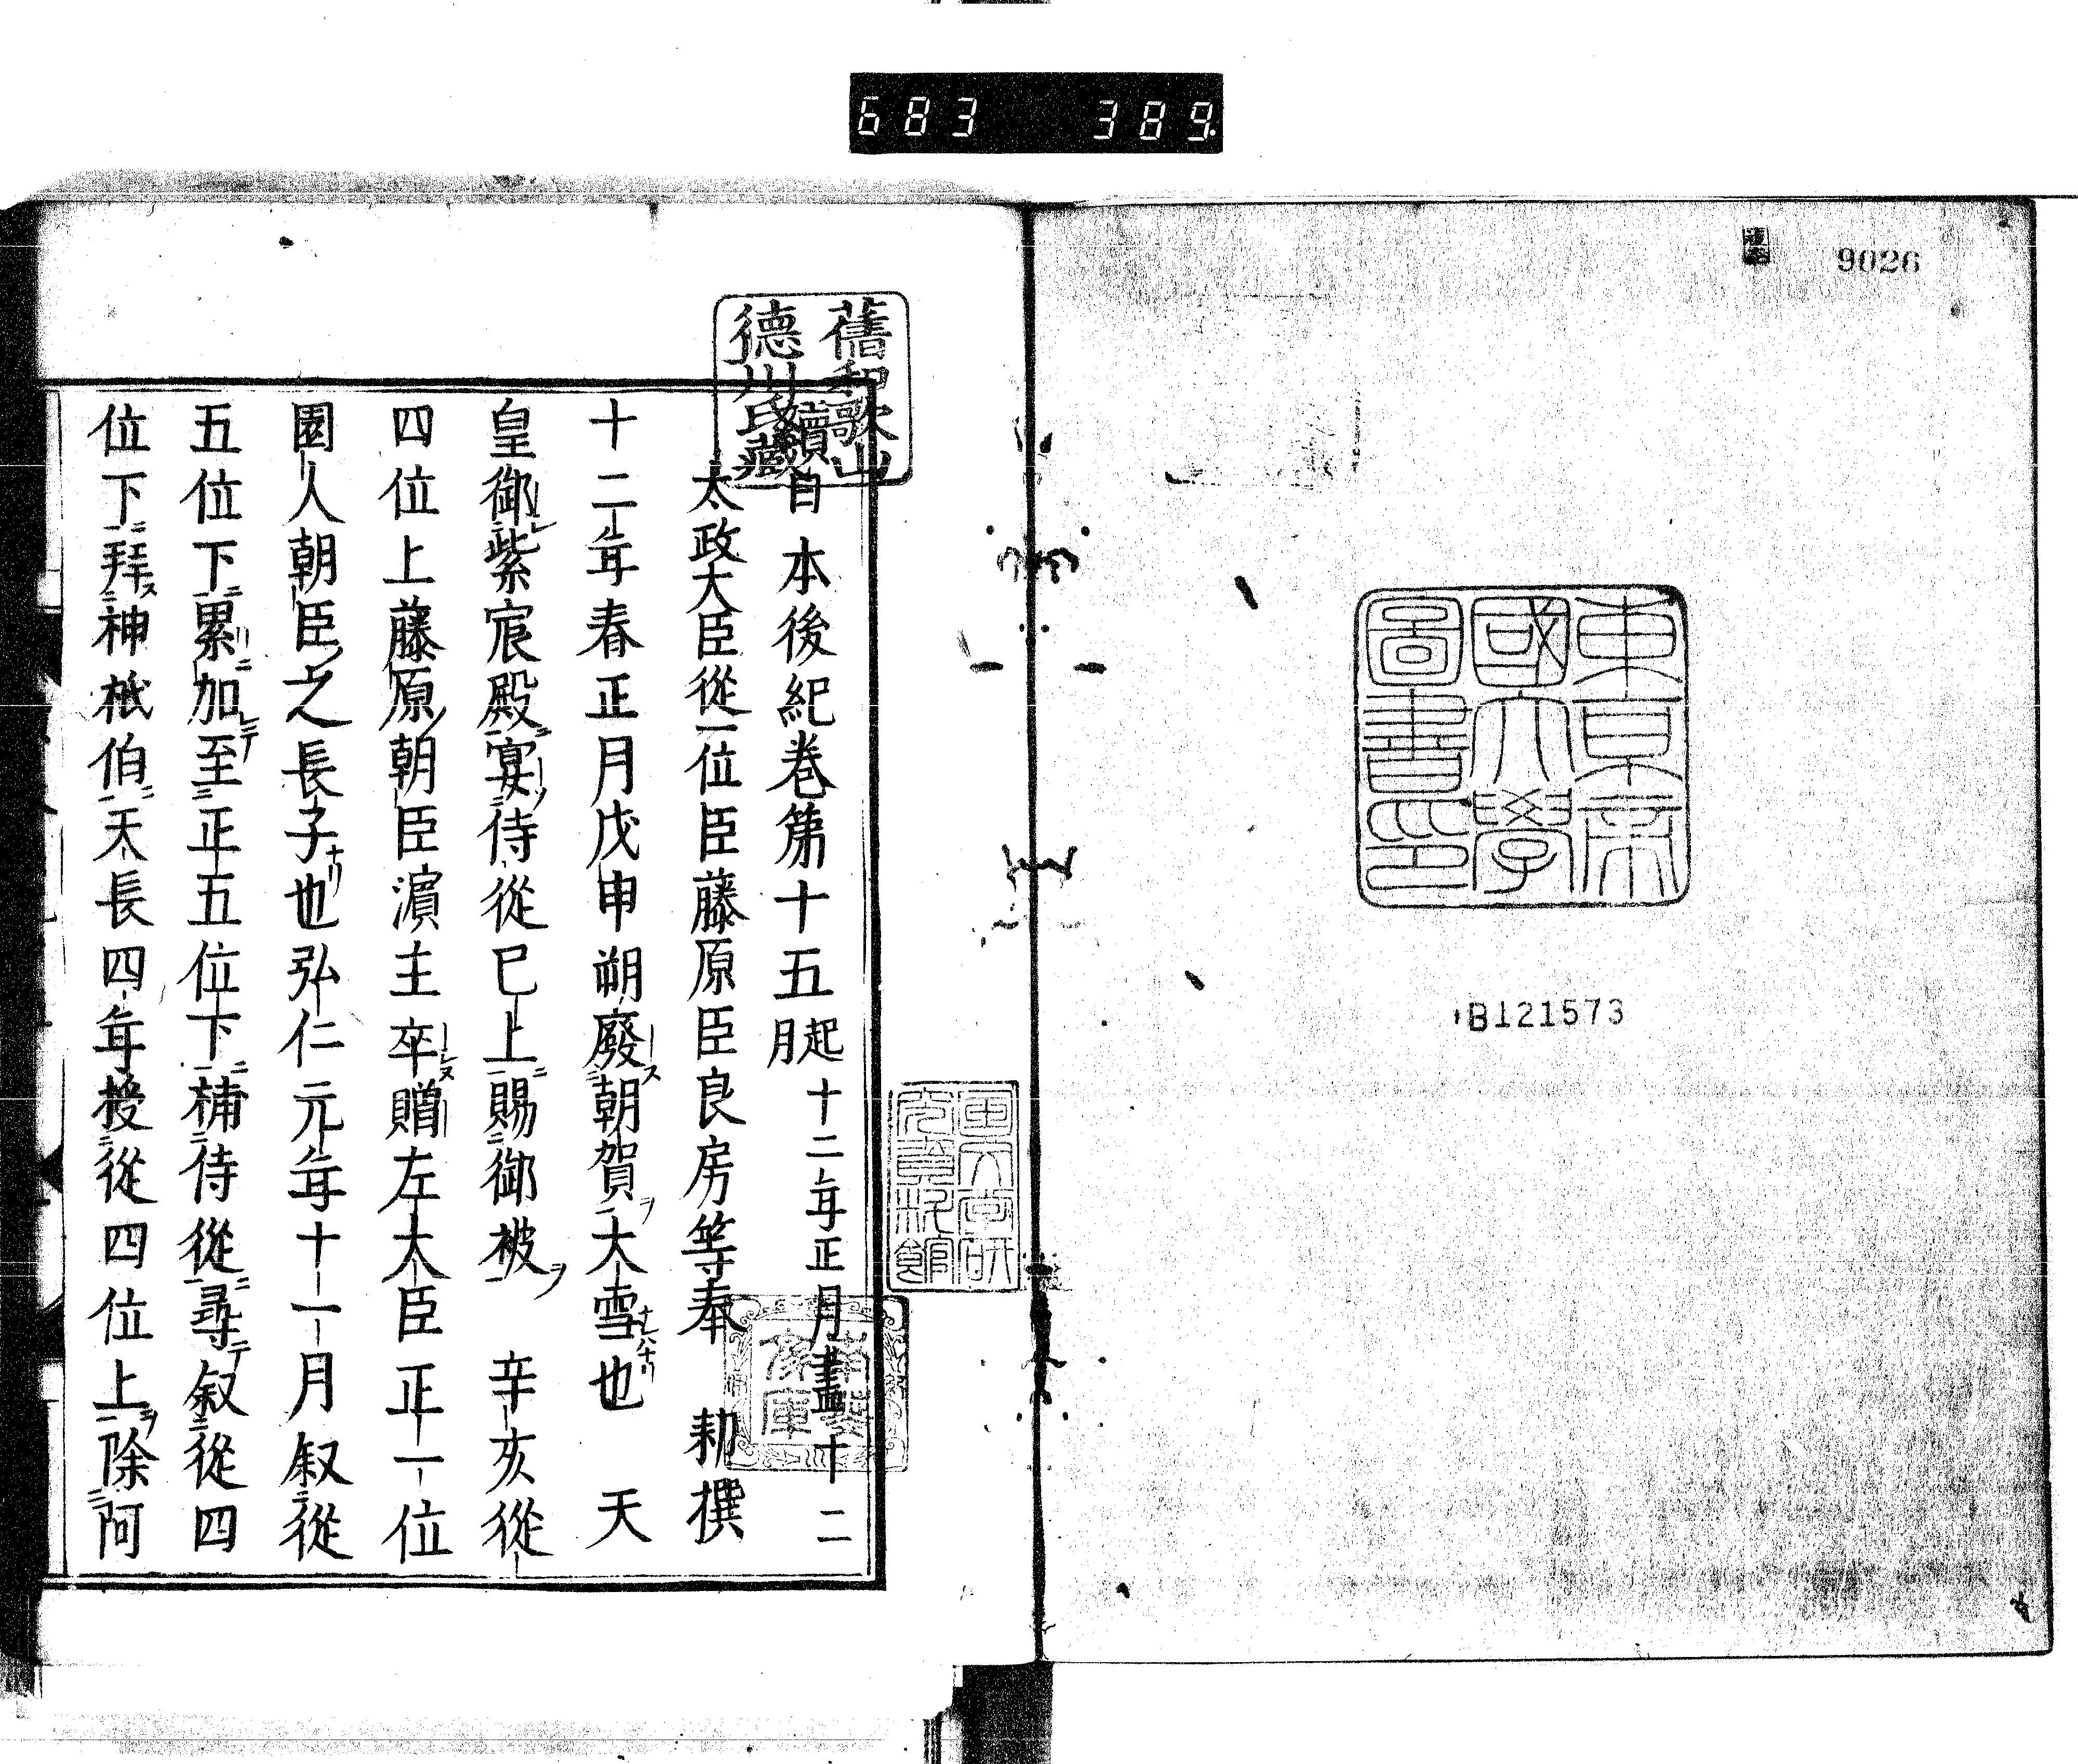 683 389
9026
東京帝
國大學
圖書印
B121573
舊和歌山
德川氏藏
南葵
文庫
續日本後紀卷第十五起十二年正月盡十二月
太政大臣從一位臣藤原臣良房等奉　勅撰
十二年春正月戊申朔廢朝賀大雪也　天
皇御紫宸殿宴侍從已上賜御被　辛亥從
四位上藤原朝臣濱主卒贈左大臣正一位
園人朝臣之長子也弘仁元年十一月叙從
五位下累加至正五位下補侍從尋叙從四
位下拜神祇伯天長四年授從四位上除阿